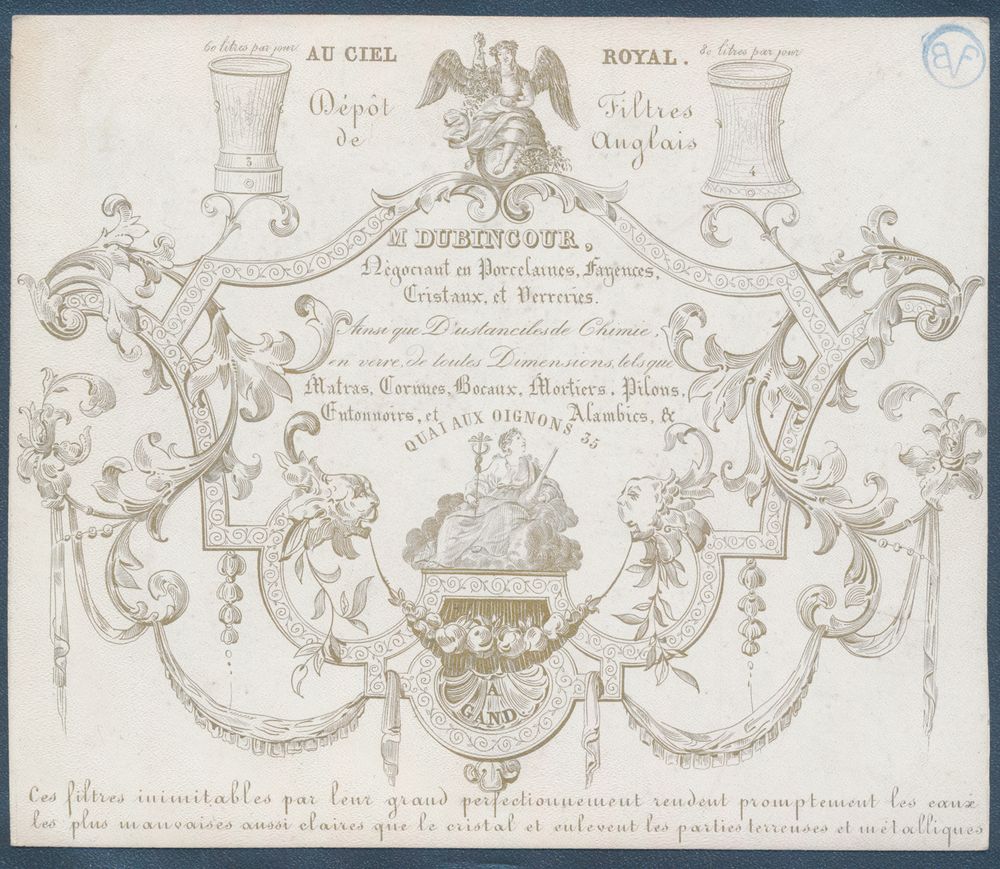 60 litres par jour AU CIEL ROYAL. 80 litres par jour
Dépôt Filtres
de Anglais
3 4
M DUBINCOUR,
Négociant en Porcelaines, Fayences,
Cristaux, et Verreries.
Ainsi que D'ustanciles de Chimie,
en verre, de toutes Dimensions, tels que
Matras, Cornues, Bocaux, Mortiers, Pilons,
Entonnoirs, et Alambics, &
QUAI AUX OIGNONS 35
A
GAND.
Ces filtres inimitables par leur grand perfectionnement rendent promptement les eaux
les plus mauvaises aussi claires que le cristal et enlevent les parties terreuses et métalliques